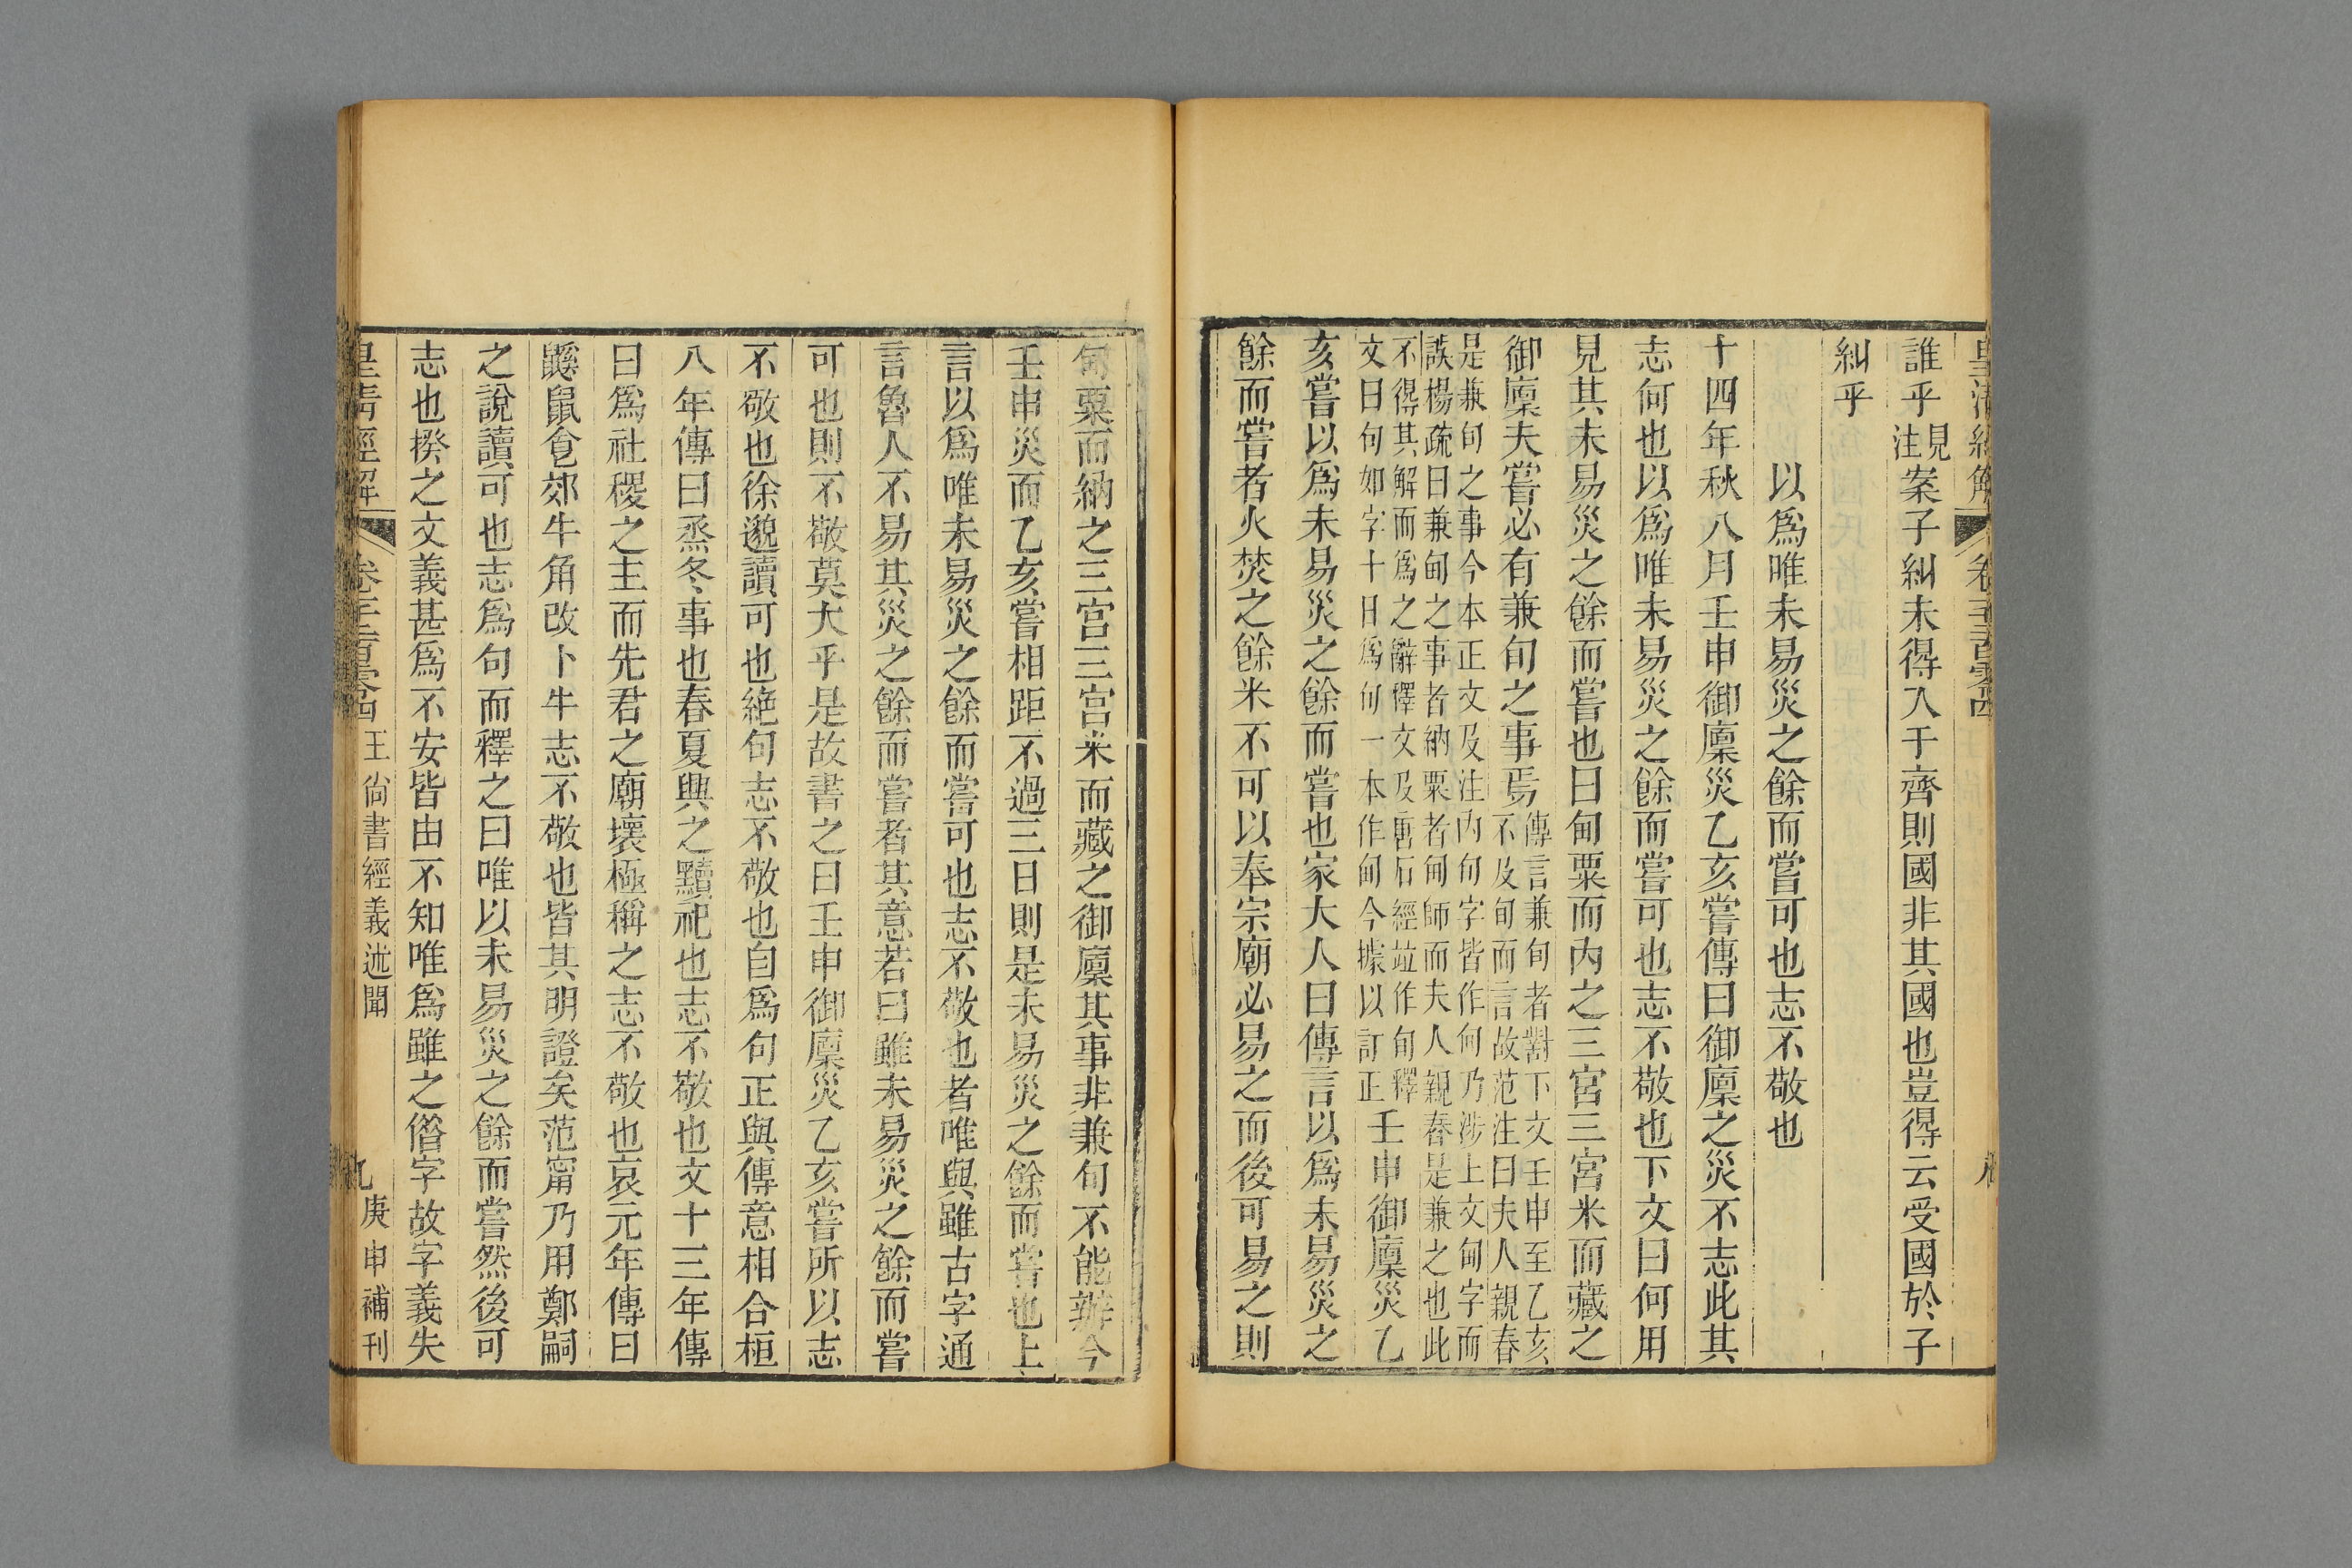 皇清經解 卷千二百零四
誰乎見注案子糾未得入于齊則國非其國也豈得云受國於子
糾乎
以爲唯未易災之餘而嘗可也志不敬也
十四年秋八月壬申御廩災乙亥嘗傳曰御廩之災不志此其
志何也以爲唯未易災之餘而嘗可也志不敬也下文曰何用
見其未易災之餘而嘗也曰甸粟而內之三宮三宮米而藏之
御廩夫嘗必有兼旬之事焉
傳言兼旬者對下文壬申至乙亥
不及旬而言故范注曰夫人親舂
是兼旬之事今本正文及注內旬字皆作甸乃涉上文甸字而
誤楊疏曰兼甸之事者納粟者甸師而夫人親舂是兼之也此
不得其解而爲之辭釋文及唐石經竝作旬釋
文曰旬如字十日爲旬一本作甸今據以訂正
壬申御廩災乙
亥嘗以爲未易災之餘而嘗也家大人曰傳言以爲未易災之
餘而嘗者火焚之餘米不可以奉宗廟必易之而後可易之則
甸粟而納之三宮三宮米而藏之御廩其事非兼旬不能辦今
壬申災而乙亥嘗相距不過三日則是未易災之餘而嘗也上
言以爲唯未易災之餘而嘗可也志不敬也者唯與雖古字通
言魯人不易其災之餘而嘗者其意若曰雖未易災之餘而嘗
可也則不敬莫大乎是故書之曰壬申御廩災乙亥嘗所以志
不敬也徐邈讀可也絶句志不敬也自爲句正與傳意相合桓
八年傳曰烝冬事也春夏興之黷祀也志不敬也文十三年傳
曰爲社稷之主而先君之廟壞極稱之志不敬也哀元年傳曰
鼷鼠食郊牛角改卜牛志不敬也皆其明證矣范甯乃用鄭嗣
之說讀可也志爲句而釋之曰唯以未易災之餘而嘗然後可
志也揆之文義甚爲不安皆由不知唯爲雖之借字故字義失
皇清經解 卷千二百零四 王尙書經義述聞 九 庚申補刊